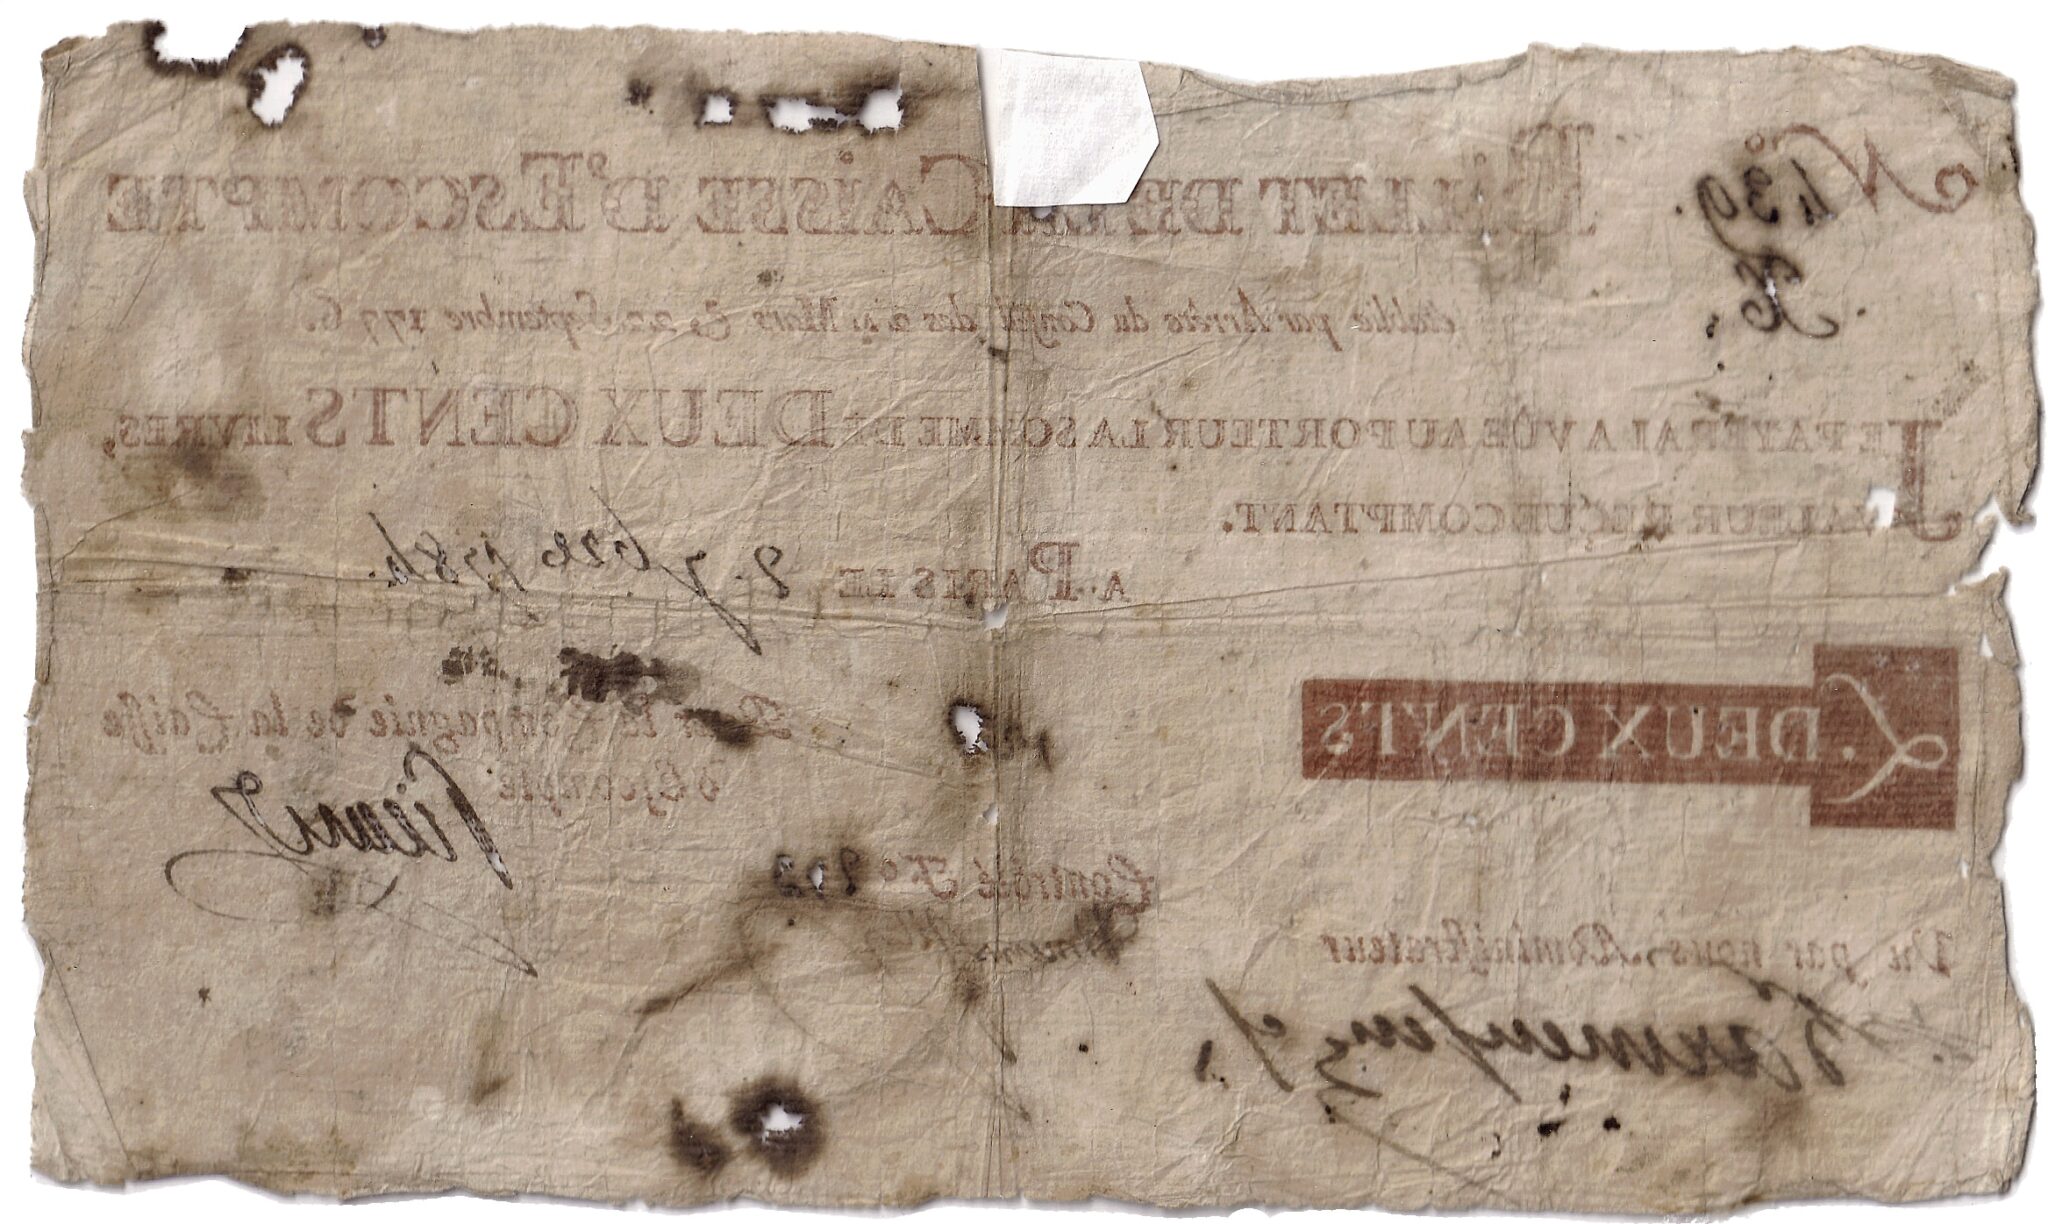 No 439.
BILLET DE LA CAISSE D'ESCOMPTE
établie par Arrêts du Conseil des 24 Mars & 22 Septembre 1776.
JE PAYERAI A VÛE AU PORTEUR LA SOMME DE DEUX CENTS LIVRES,
VALEUR REÇUE COMPTANT.
A PARIS LE 2. 7bre 1784.
L. DEUX CENTS
Pour la Compagnie de la Caisse
d'Escompte
Contrôlé Fo
Vu par nous Administrateur